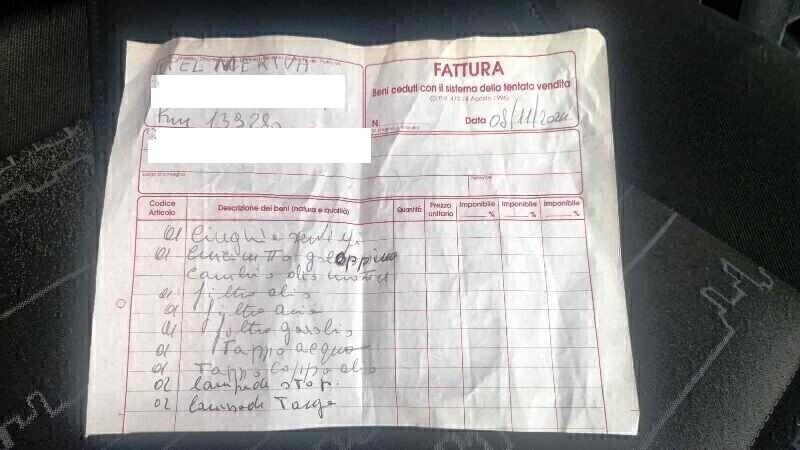 OPEL MERIVA
Km 13928
FATTURA
Beni ceduti con il sistema della tentata vendita
N.
Data 08/11/2024
Codice Articolo
Descrizione dei beni (natura e qualità)
Quantità
Prezzo unitario
Imponibile %
Imponibile %
Imponibile %
01
01
Cambio olio motore
01 filtro olio
01 filtro aria
01 filtro gasolio
01 Tappo acqua
01 Tappo coppa olio
02 lampade stop.
02 lampade Targa